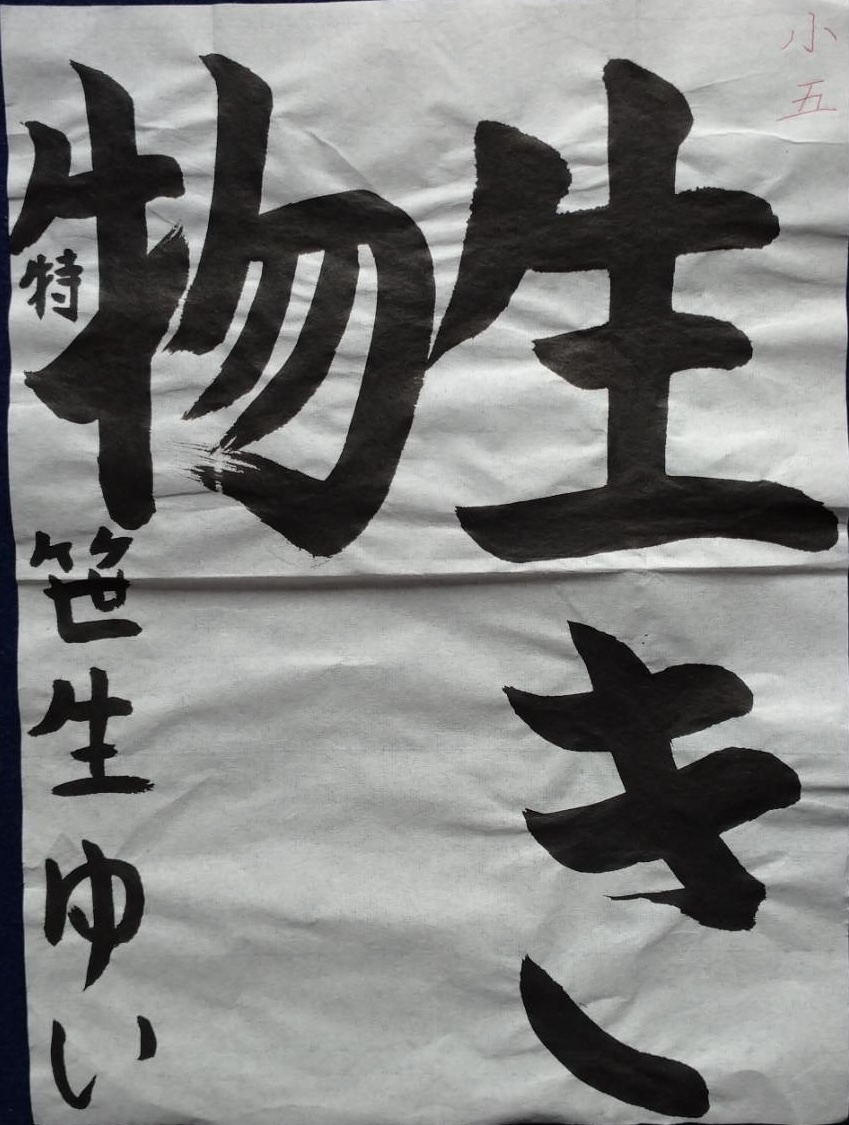 小五
生き
物
特
笹生ゆい